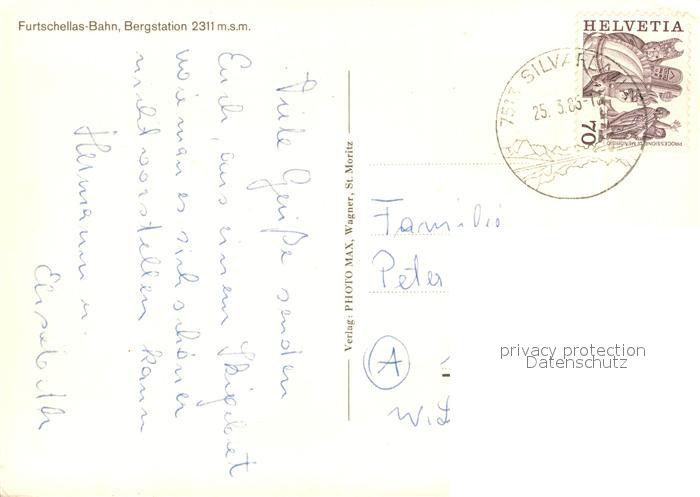 Furtschellas-Bahn, Bergstation 2311 m.s.m.
Viele Grüße senden
Euch, aus einem Skigebiet
wie man es sich schöner
nicht vorstellen kann
Hermann u.
Elisabeth
Verlag: PHOTO MAX, Wagner, St. Moritz
HELVETIA
70
PROCESSIONE DI MENDRISIO
7513 SILVAPLANA
25. 3. 86
Familie
Peter
A
privacy protection
Datenschutz